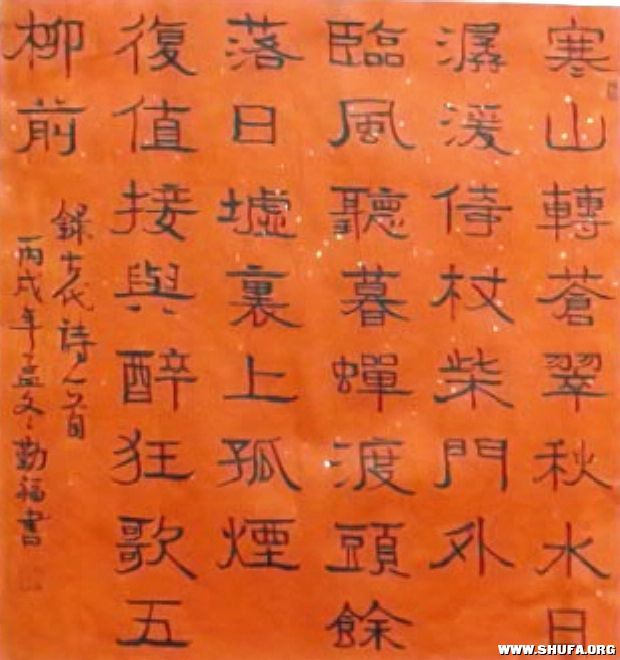 寒山轉蒼翠秋水日
潺湲侍杖柴門外
臨風聽暮蟬渡頭餘
落日墟裏上孤煙
復值接與醉狂歌五
柳前
錄古代詩一首
丙戌年孟冬勤福書
WWW.SHUFA.ORG